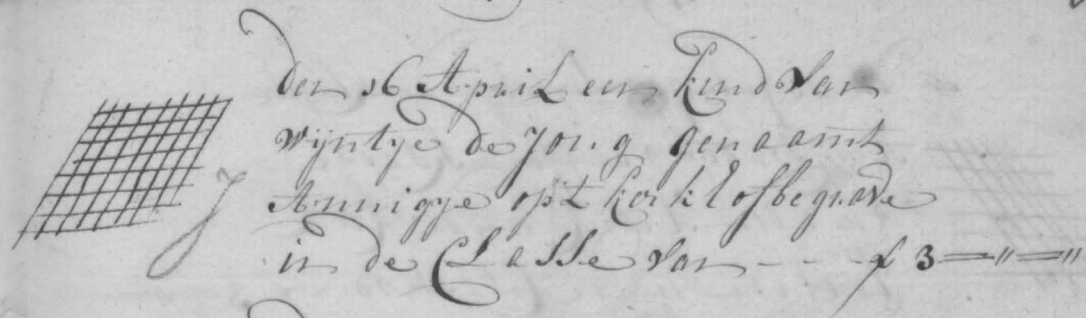 den 16 April een kind van
wijntye de Jong genaamt
Annigye op't kerkhof begrave
J in de Classe van - - - - f 3 = " = "